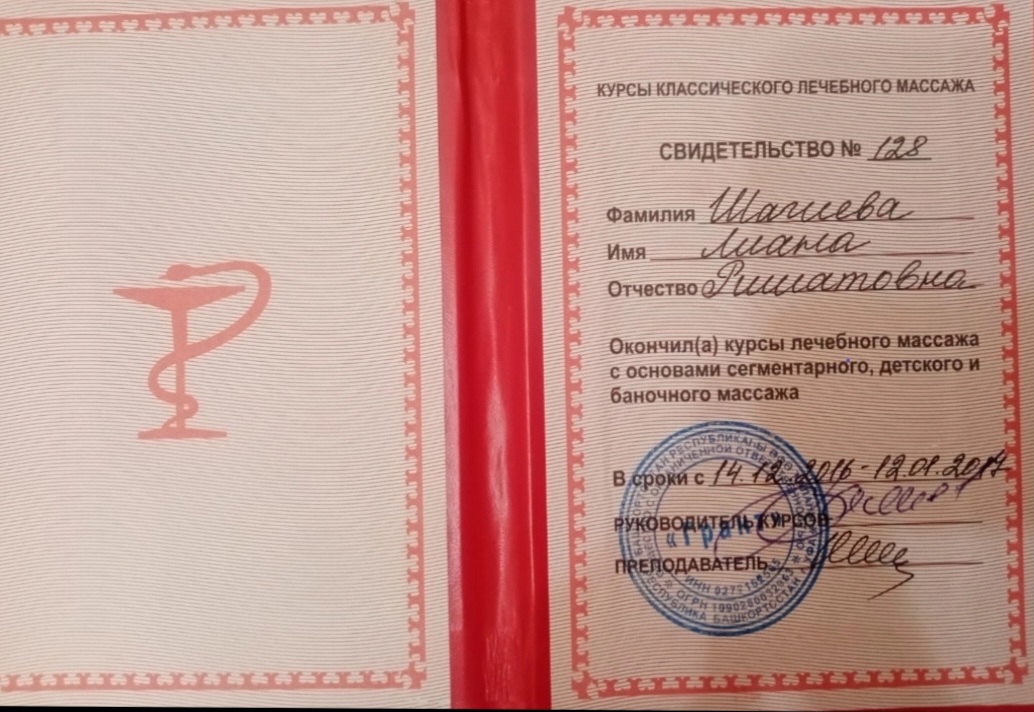 КУРСЫ КЛАССИЧЕСКОГО ЛЕЧЕБНОГО МАССАЖА
СВИДЕТЕЛЬСТВО № 128
Фамилия Шагиева
Имя Лиана
Отчество Ришатовна
Окончил(а) курсы лечебного массажа
с основами сегментарного, детского и
баночного массажа
В сроки с 14.12.2016-12.01.2017
РУКОВОДИТЕЛЬ КУРСОВ
«Грант»
ПРЕПОДАВАТЕЛЬ
РЕСПУБЛИКА БАШКОРТОСТАН
ИНН
ОГРН